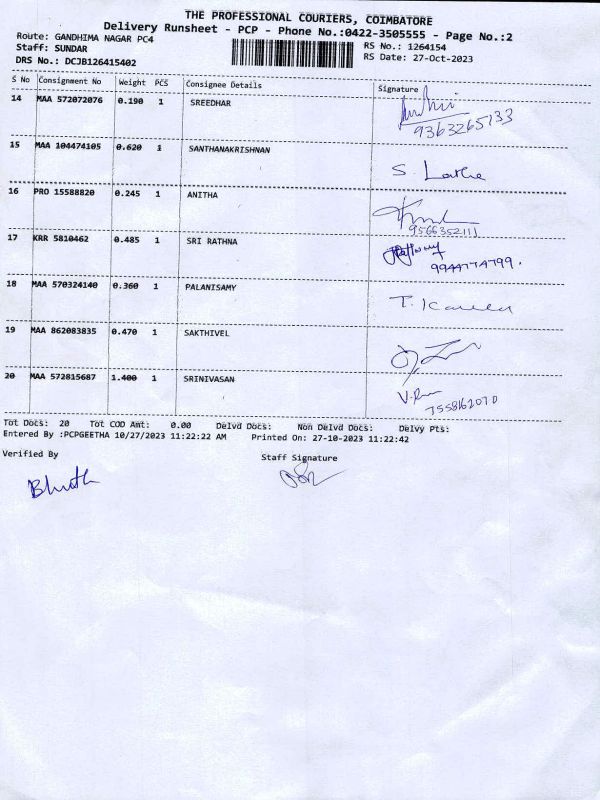 THE PROFESSIONAL COURIERS, COIMBATORE
Delivery Runsheet - PCP - Phone No.:0422-3505555 - Page No.:2
Route: GANDHIMA NAGAR PC4 RS No.: 1264154
Staff: SUNDAR RS Date: 27-Oct-2023
DRS No.: DCJB126415402
S No Consignment No Weight PCS Consignee Details Signature
14 MAA 572072076 0.190 1 SREEDHAR
9363265133
15 MAA 104474105 0.620 1 SANTHANAKRISHNAN
S. Latha
16 PRO 15588820 0.245 1 ANITHA
9566352111
17 KRR 5810462 0.485 1 SRI RATHNA
9944774799.
18 MAA 570324140 0.360 1 PALANISAMY
T.
19 MAA 862083835 0.470 1 SAKTHIVEL
20 MAA 572815687 1.400 1 SRINIVASAN
7558162070
Tot Docs: 20 Tot COD Amt: 0.00 Delvd Docs: Non Delvd Docs: Delvy Pts:
Entered By :PCPGEETHA 10/27/2023 11:22:22 AM Printed On: 27-10-2023 11:22:42
Verified By Staff Signature